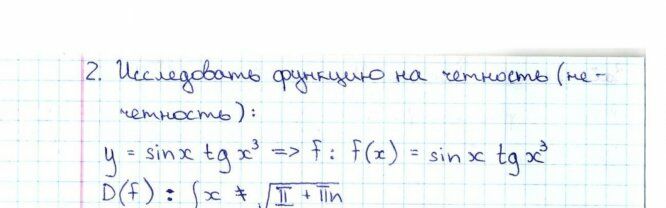 2. Исследовать функцию на четность (не-
четность):
y = sinx tg x³ => f: f(x) = sinx tg x³
D(f) : { x ≠ √π + πn